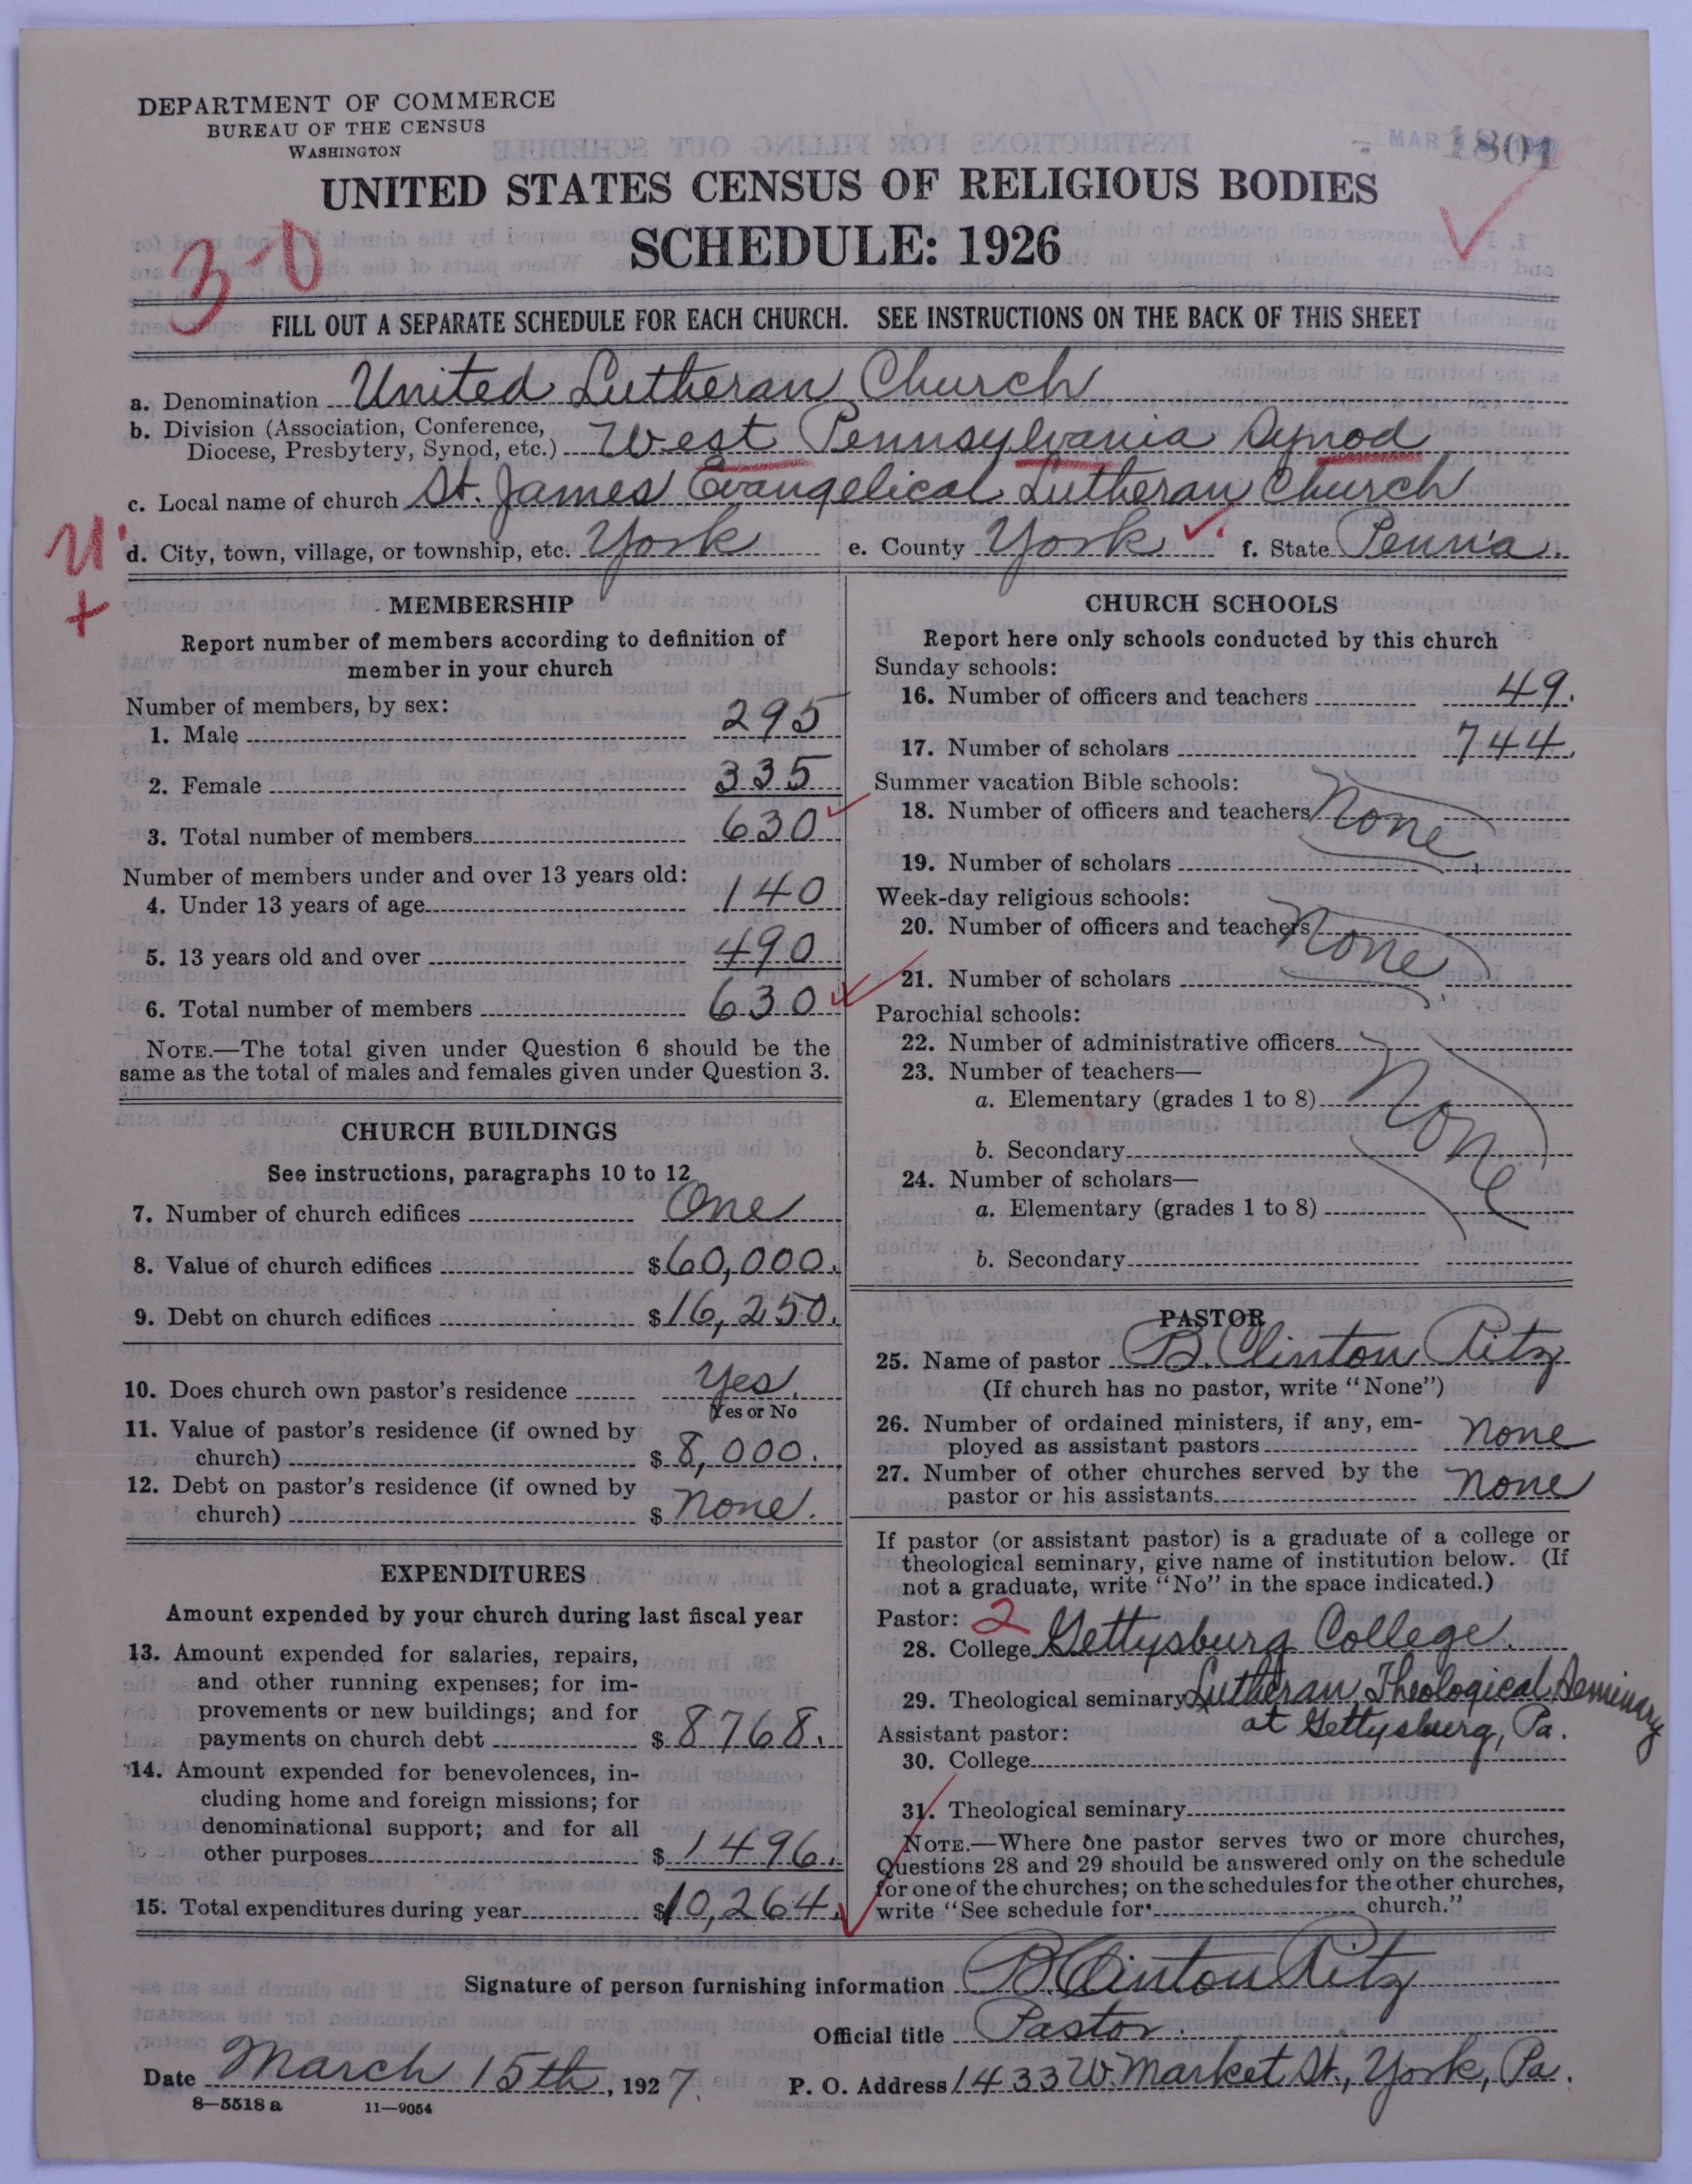 DEPARTMENT OF COMMERCE
BUREAU OF THE CENSUS
WASHINGTON
MAR
1801
UNITED STATES CENSUS OF RELIGIOUS BODIES
SCHEDULE: 1926
30
FILL OUT A SEPARATE SCHEDULE FOR EACH CHURCH. SEE INSTRUCTIONS ON THE BACK OF THIS SHEET
a. Denomination United Lutheran Church
b. Division (Association, Conference,
Diocese, Presbytery, Synod, etc.) West Pennsylvania Synod
c. Local name of church St. James Evangelical Lutheran Church
d. City, town, village, or township, etc. York e. County York f. State Penn'a.
MEMBERSHIP
Report number of members according to definition of
member in your church
Number of members, by sex:
1. Male 295
2. Female 335
3. Total number of members 630
Number of members under and over 13 years old:
4. Under 13 years of age 140
5. 13 years old and over 490
6. Total number of members 630
NOTE.—The total given under Question 6 should be the
same as the total of males and females given under Question 3.
CHURCH BUILDINGS
See instructions, paragraphs 10 to 12
7. Number of church edifices One
8. Value of church edifices $60,000.
9. Debt on church edifices $16,250.
10. Does church own pastor's residence Yes.
Yes or No
11. Value of pastor's residence (if owned by
church) $8,000.
12. Debt on pastor's residence (if owned by
church) $ none.
EXPENDITURES
Amount expended by your church during last fiscal year
13. Amount expended for salaries, repairs,
and other running expenses; for im-
provements or new buildings; and for
payments on church debt $8768.
14. Amount expended for benevolences, in-
cluding home and foreign missions; for
denominational support; and for all
other purposes $1496.
15. Total expenditures during year $10,264.
CHURCH SCHOOLS
Report here only schools conducted by this church
Sunday schools:
16. Number of officers and teachers 49.
17. Number of scholars 744.
Summer vacation Bible schools:
18. Number of officers and teachers None
19. Number of scholars
Week-day religious schools:
20. Number of officers and teachers None
21. Number of scholars
Parochial schools:
22. Number of administrative officers
23. Number of teachers—
a. Elementary (grades 1 to 8) None
b. Secondary
24. Number of scholars—
a. Elementary (grades 1 to 8)
b. Secondary
PASTOR
25. Name of pastor B. Clinton Ritz
(If church has no pastor, write "None")
26. Number of ordained ministers, if any, em-
ployed as assistant pastors none
27. Number of other churches served by the
pastor or his assistants none
If pastor (or assistant pastor) is a graduate of a college or
theological seminary, give name of institution below. (If
not a graduate, write "No" in the space indicated.)
Pastor: 2
28. College Gettysburg College.
29. Theological seminary Lutheran Theological Seminary
at Gettysburg, Pa.
Assistant pastor:
30. College
31. Theological seminary
NOTE.—Where one pastor serves two or more churches,
Questions 28 and 29 should be answered only on the schedule
for one of the churches; on the schedules for the other churches,
write "See schedule for church."
Signature of person furnishing information B Clinton Ritz
Official title Pastor.
Date March 15th, 1927. P. O. Address 1433 W. Market St., York, Pa.
8—5518 a 11—9054